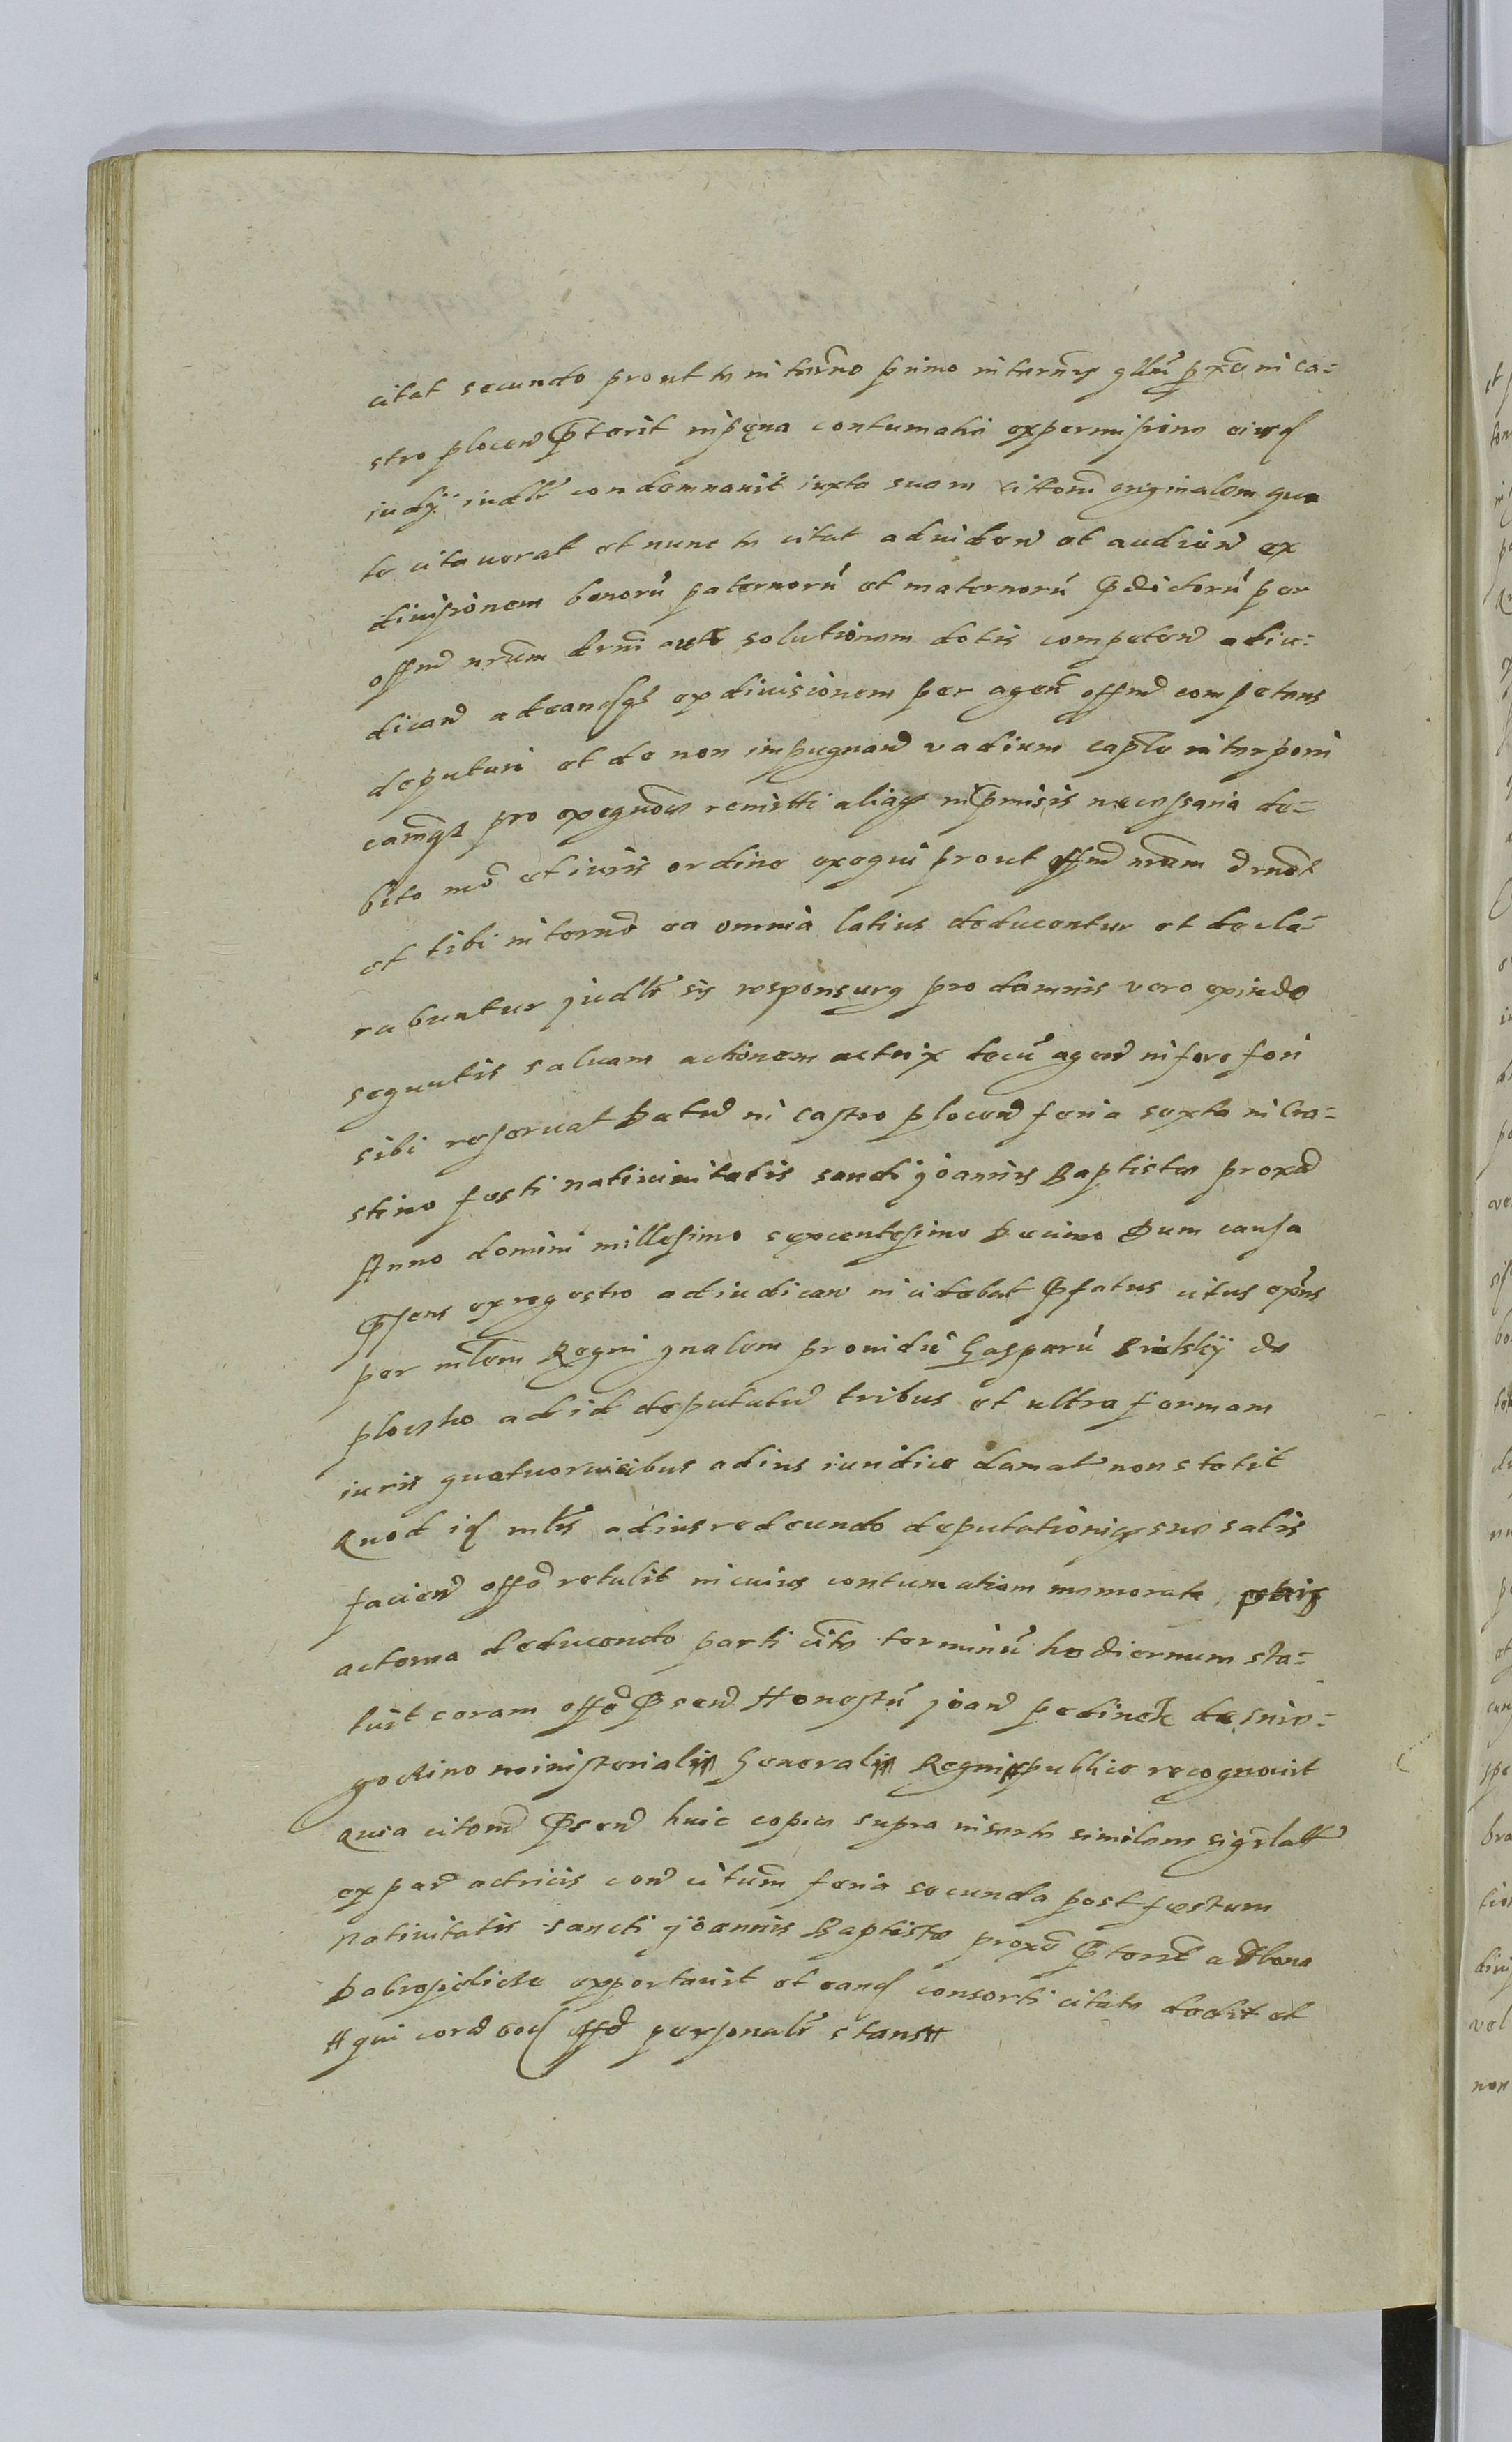 citat secundo prout te in termno primo in terminis gllib proxa in ca=
stro plocen pterit in pęna contumatie ex permissione eiusd
iudy iudlr condemnavit iuxta suam cittom originalem qua
te citaverat et nunc te citat ad viden et audien ex
divisionem bonorū paternorū et maternorū pdictorū per
offm nrum drni aut solutionem dotis competen adiu=
dican ad eandsqs exdivisionem per agen offm competens
deputari et de non impugnand vadium caplo interponi
eamqs pro exequõe remitti aliaqs in pmissis necessaria de=
bito mõ et iuris ordine exequi prout offm nrum drnet
et tibi in termō ea omnia latius deducentur et decla=
rabuntur judlr sis responsurg pro damnis vero exinde
sequutis salvam actionem actrix tecū agen in foro fori
sibi reservat Datm in castro plocen feria sexta in Cra=
stino festi nativitatis sancti joannis Baptistæ proxa
Anno domini millesimo sexcentesimo decimo Dum causa
psens ex regestro adiudican incidebat pfatus citus exns
per mlem Regni gnalem providū Gasparū de
plocsko ad id deputatm tribus et ultra formam
iuris quatuor vicibus ad ius iuridice clamat non stetit
Quod id mlis ad ius redeundo deputationiqs sue satis
facien offo retulit in cuius contumatiam memorata
actorea deducendo parti cite terminū hodiernum sta=
tuit coram offo psen Honestū joan pedinek de snie=
gockino ministerialis Generalis Regni publice recognovit
Quia citom psen huic copie supra inserte similem sigillat
ex par actricis con citum feria secunda post festum
Nativitatis sancti joannis Baptistæ proxa pterit ad bona
exportavit et eand consorti citate dedit et
# qui cord eod offo personalr stans #